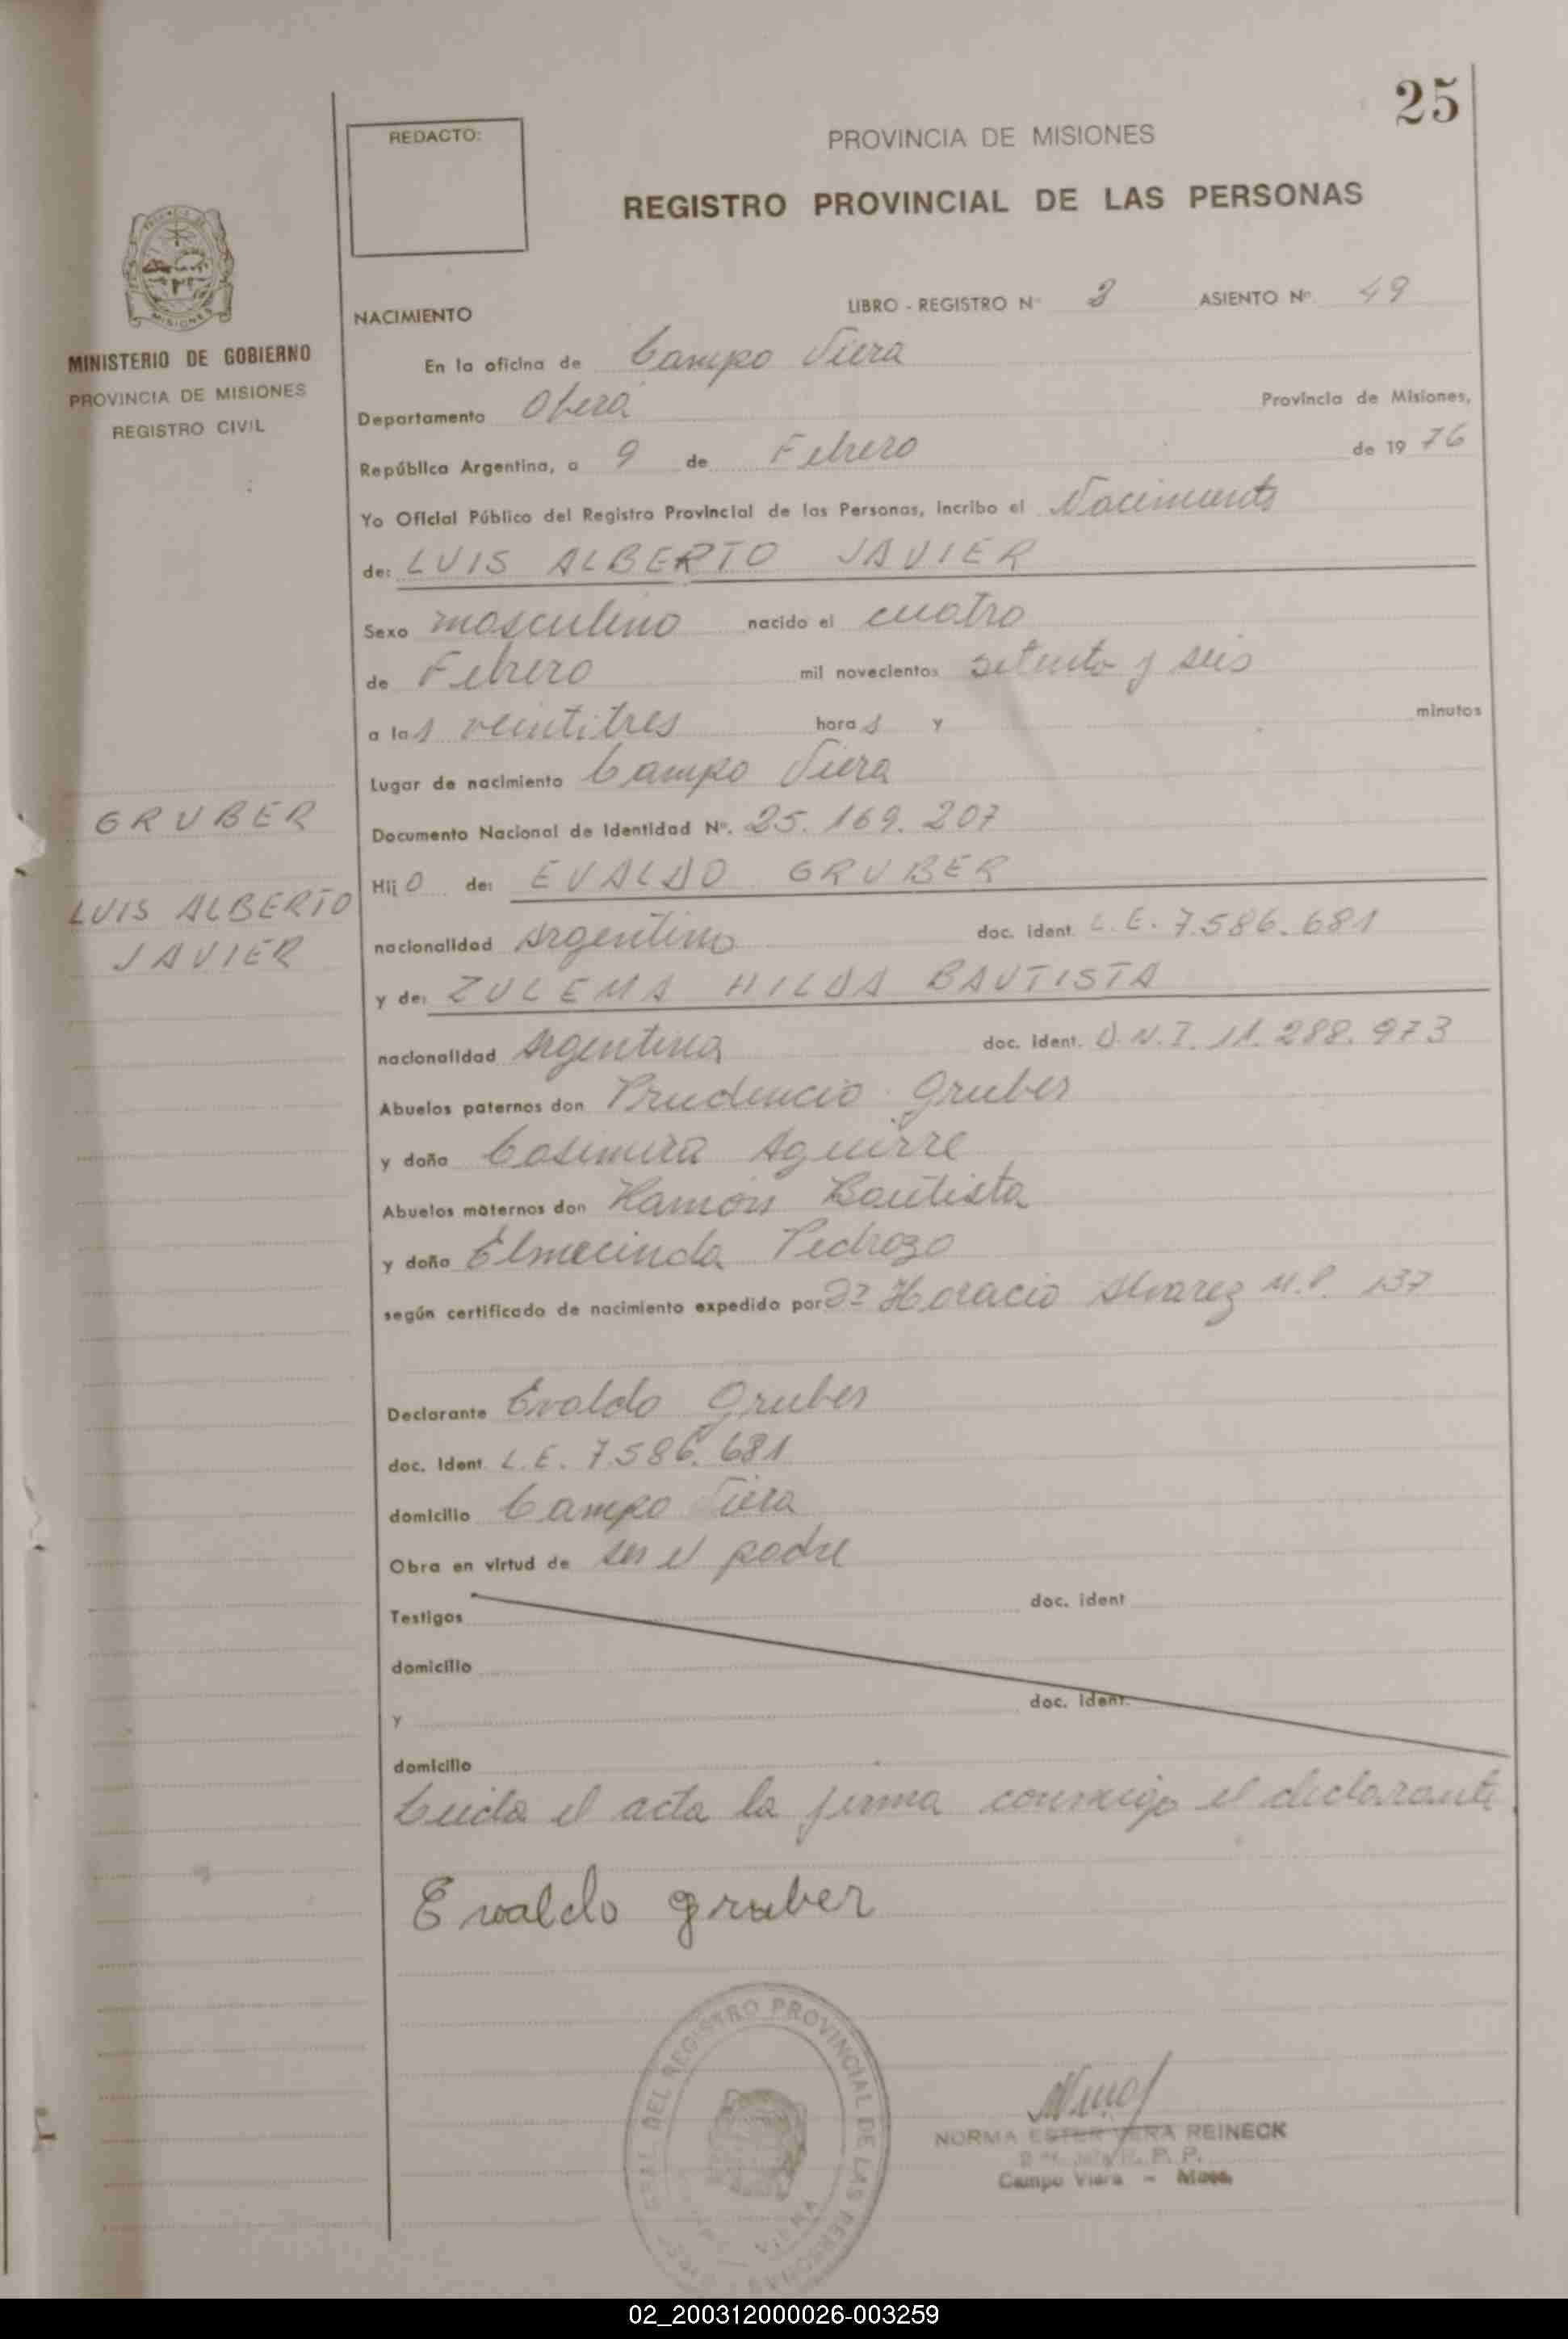 25
REDACTO:
PROVINCIA DE MISIONES
REGISTRO PROVINCIAL DE LAS PERSONAS
MISIONES
MINISTERIO DE GOBIERNO
PROVINCIA DE MISIONES
REGISTRO CIVIL
NACIMIENTO LIBRO - REGISTRO Nº 3 ASIENTO Nº 49
En la oficina de Campo Viera
Departamento Oberá Provincia de Misiones,
República Argentina, a 9 de Febrero de 19 76
Yo Oficial Público del Registro Provincial de las Personas, incribo el Nacimiento
de: LUIS ALBERTO JAVIER
Sexo masculino nacido el cuatro
de Febrero mil novecientos setenta y seis
a las veintitres horas y minutos
Lugar de nacimiento Campo Viera
GRUBER
LUIS ALBERTO
JAVIER
Documento Nacional de Identidad Nº. 25.169.207
Hijo de: EVALDO GRUBER
nacionalidad argentino doc. ident. L.E. 7.586.681
y de: ZULEMA HILDA BAUTISTA
nacionalidad argentina doc. ident. D.N.I. 11.288.973
Abuelos paternos don Prudencio Gruber
y doña Casimira Aguirre
Abuelos maternos don Ramón Bautista
y doña Elmecinda Pedrozo
según certificado de nacimiento expedido por Dr Horacio Alvarez M.P. 137
Declarante Evaldo Gruber
doc. Ident. L.E. 7.586.681
domicilio Campo Viera
Obra en virtud de ser el padre
Testigos doc. ident
domicilio
y doc. ident.
domicilio
Leida el acta la firma conmigo el declarante
Evaldo gruber
GRAL. DEL REGISTRO PROVINCIAL DE LAS PERSONAS
VIERA
NORMA ESTER VERA REINECK
R. P. P.
Campo Viera - Mnes.
02_200312000026-003259